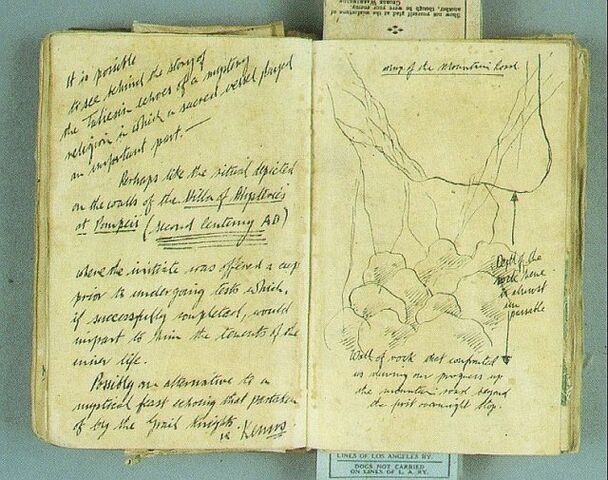 It is possible
to see behind the story of
the Taliesin echoes of a mystery
religion in which a sacred vessel played
an important part. —
Perhaps like the ritual depicted
on the walls of the Villa of Mysteries
at Pompeii (second Century AD)
where the initiate was offered a cup
prior to undergoing tests which,
if successfully completed, would
impart to him the tenents of the
inner life.
Possibly an alternative to a
mystical feast echoing that partaken
of by the Grail Knights.
Show not yourself glad at the misfortune of
another, though he were your enemy.
GEORGE WASHINGTON
Map of the Mountain Road
Depth of the
rock here
is almost
im
possible
Wall of rock that confronted
us during our progress up
the mountain road beyond
the first overnight stop.
LINES OF LOS ANGELES RY.
DOGS NOT CARRIED
ON LINES OF L. A. RY.